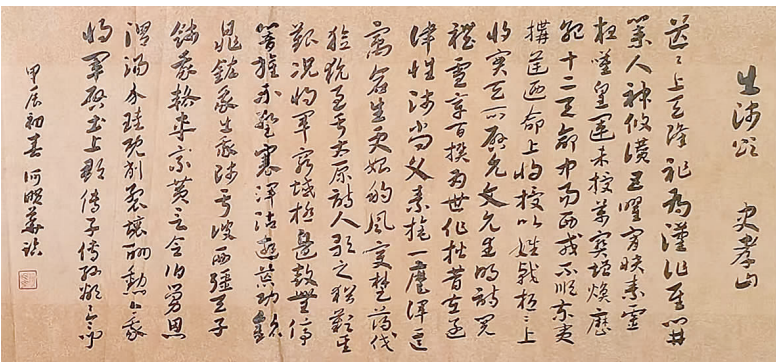 出師頌 史孝山
茫〻上天降祚為漢作基開
業人神攸讚五曜霄映素靈
夜歎皇運未授萬寶增煥歷
紀十二天命中易西戎不順東夷
構逆乃命上將授以雄戟桓〻上
將實天所啟允文允武明詩閱
禮憲章百揆為世作楷昔在孟
津惟師尚父素旄一麾渾一區
宇蒼生更始朔風變楚薄伐
獫狁至于太原詩人歌之猶歎其
艱況我將軍窮域極邊鼓無停
響旗不暫褰澤霑遐荒功銘
鼎鉉我出我師于彼西疆天子
餞我輅車乘黃言念伯舅恩
深渭陽介珪既削裂壤酬勳今我
將軍啟土上郡傳子傳孫顯〻令問
甲辰初春 何曉臨